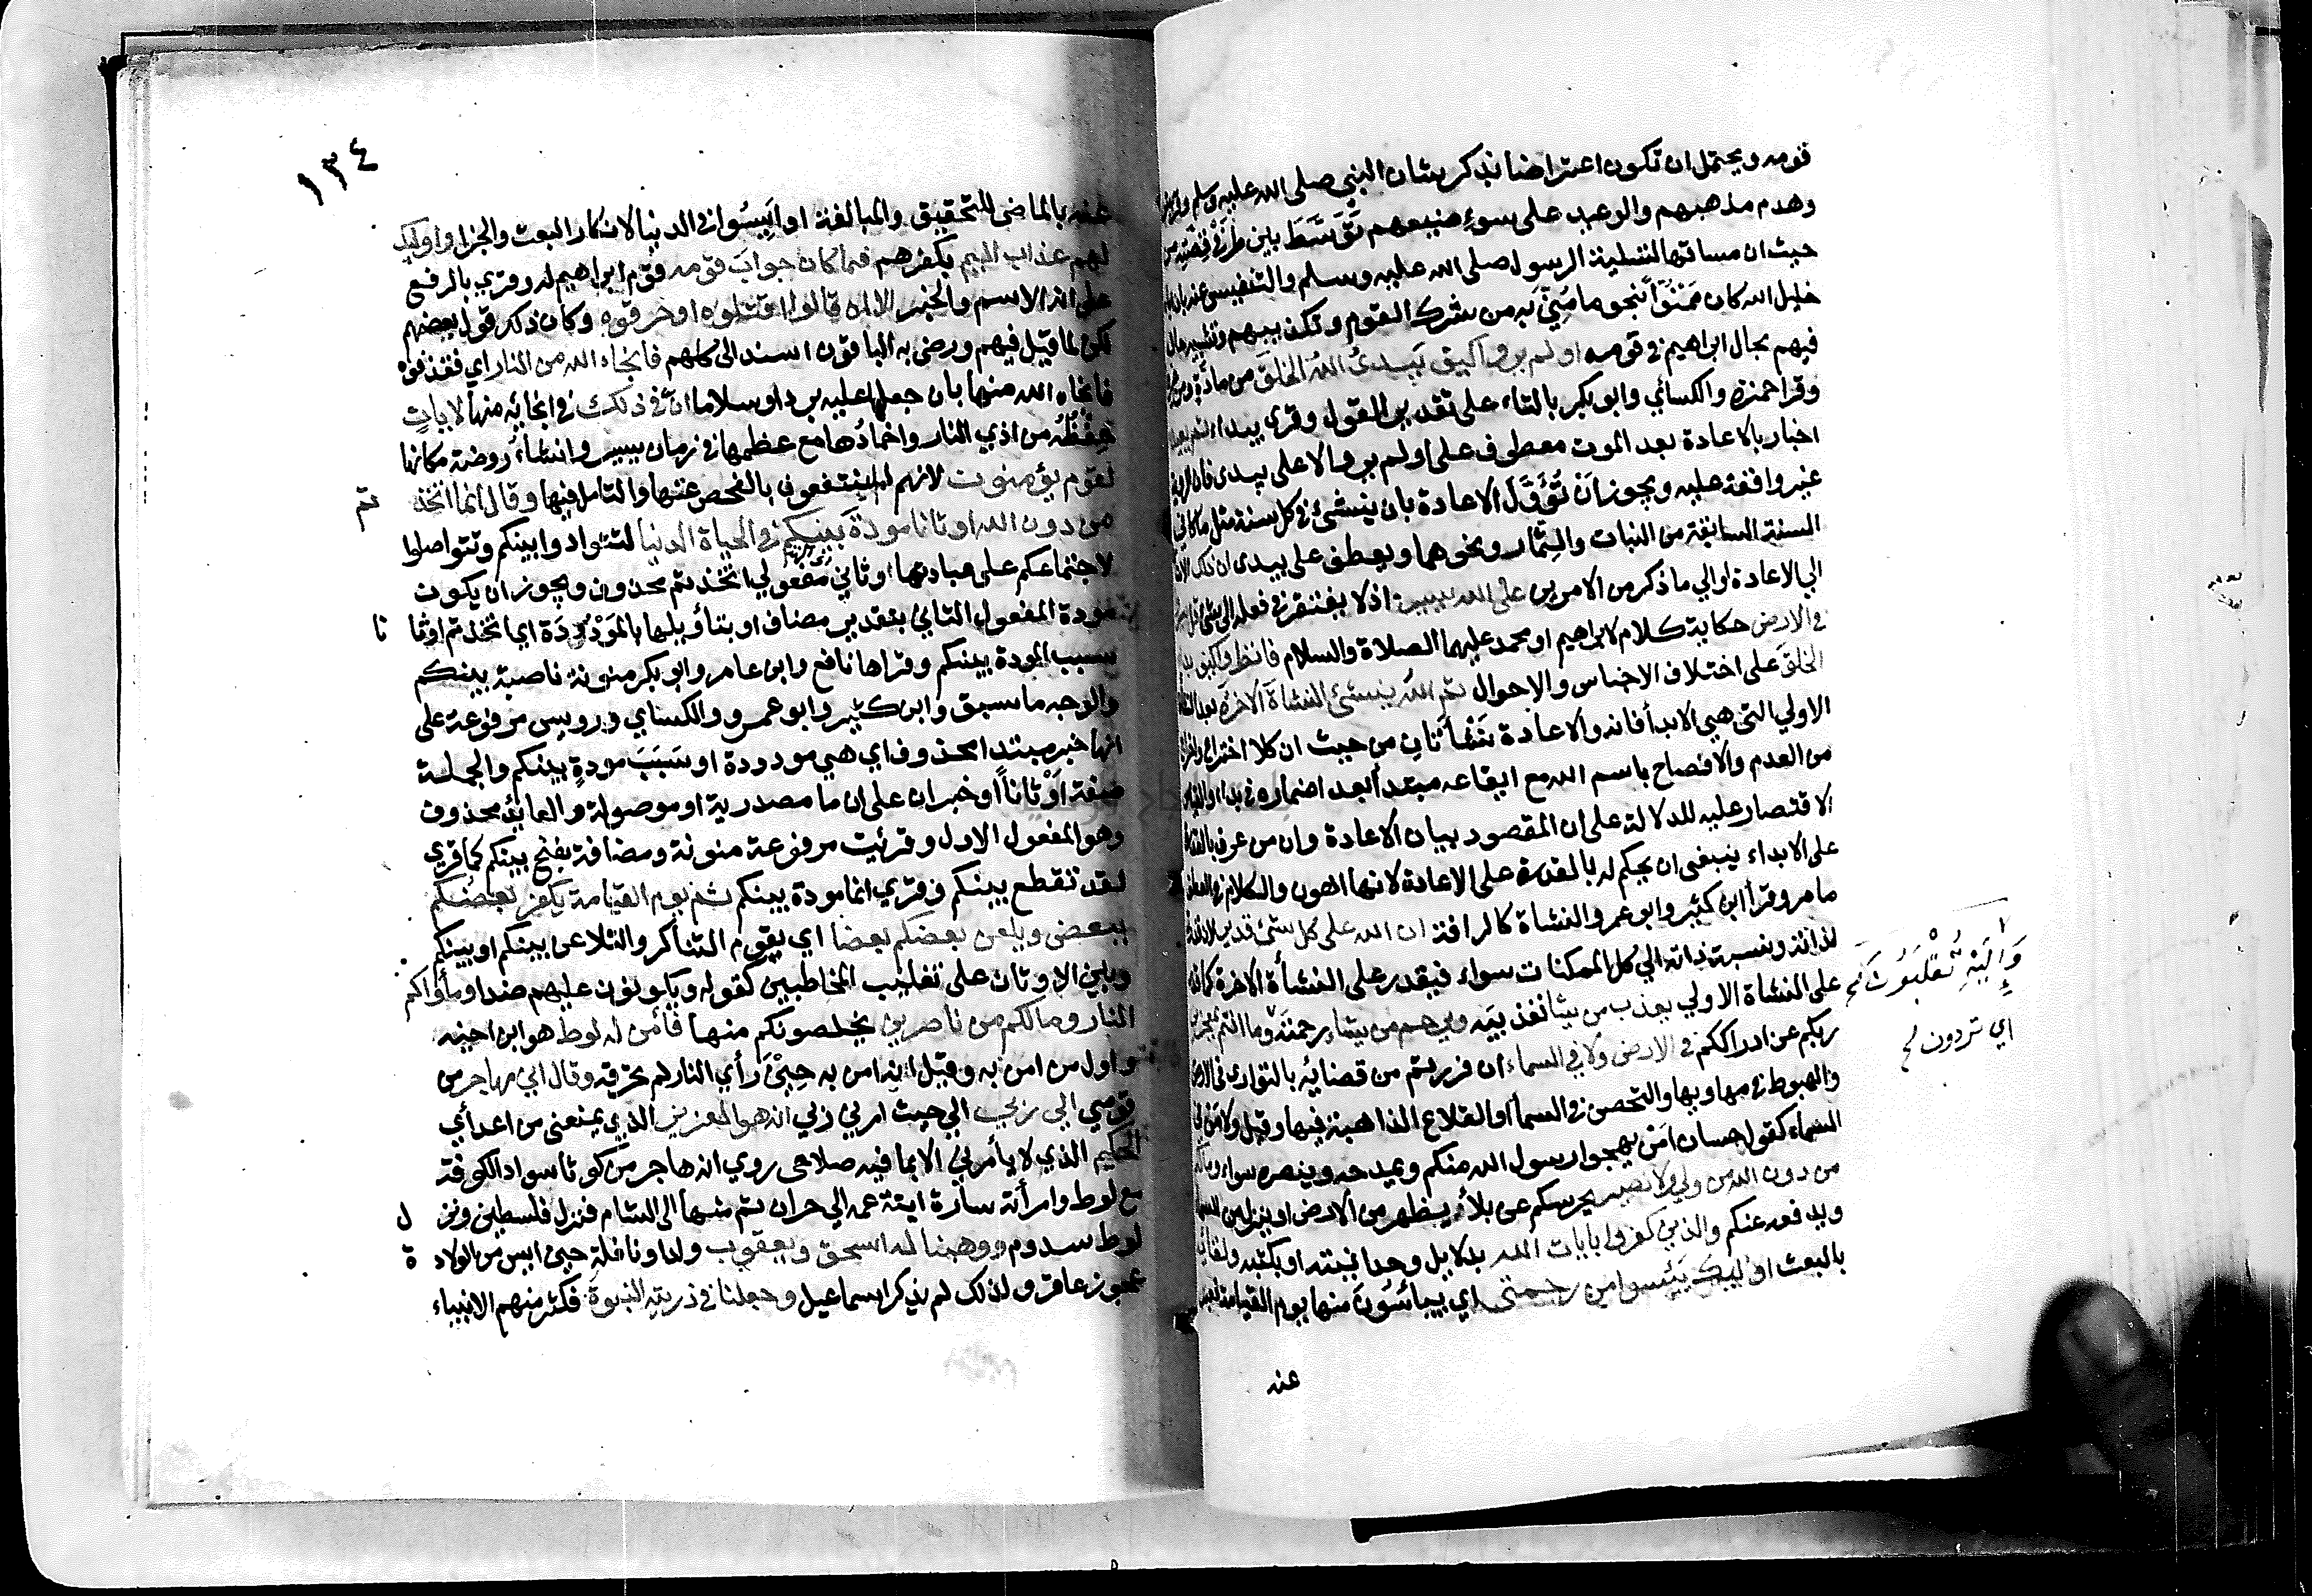 قومه ويحتمل ان تكون اعتراضا بذكر شان النبي صلى الله عليه وسلم
وهدم مذهبهم والوعيد على سوء صنيعهم تَوَسَّطَ بين طرفي قصته من
حيث ان مساقها لتسلية الرسول صلى الله عليه وسلم والتنفيس عنه بان
خليل الله كان ممنوًّا بنحو ما مُنِيَ به من شرك القوم وتكذيبهم وتشبيه حال
فيهم بحال ابراهيم في قومه اولم يروا كيف يبدئ الله الخلق من مادة
وقرا حمزة والكسائي وابو بكر بالتاء على تقدير القول وقرئ يبدا ثم يعيده
اخبار بالاعادة بعد الموت معطوف على اولم يروا لا على يبدئ فان الرؤية
غير واقعة عليه ويجوز ان تُؤَوَّل الاعادة بان ينشئ في كل سنة مثل ما كان في
السنة السابقة من النبات والثمار ونحوهما ويعطف على يبدئ ان ذلك
الي الاعادة او الي ما ذكر من الامرين على الله يسير اذ لا يفتقر في فعله الى شئ
في الارض حكاية كلام لابراهيم او محمد عليهما الصلاة والسلام فانظروا كيف بدا
الخلق على اختلاف الاجناس والاحوال ثم الله ينشئ النشاة الاخرة بعد النشاة
الاولي التي هي الابدأ فانه والاعادة نشأتان من حيث ان كلا اختراع
من العدم والافصاح باسم الله مع ايقاعه مبتدأ بعد اضماره في بدا والقياس
الاقتصار عليه للدلالة على ان المقصود بيان الاعادة وان من عرف بالقدرة
على الابداء ينبغي ان يحكم له بالقدرة على الاعادة لانها اهون والكلام في العطف
ما مر وقرأ ابن كثير وابو عمرو النشاة كالرافة ان الله على كل شئ قدير لان قدرته
لذاته ونسبة ذاته الي كل الممكنات سواء فيقدر على النشأة الاخرة كما قدر
على النشاة الاولي يعذب من يشا تعذيبه ويرحم من يشاء رحمته وما انتم بمعجزين
ربكم عن ادراككم في الارض ولا في السماء ان فررتم من قضائه بالتواري في الارض
والهبوط في مهاويها والتحصن في السماء او القلاع الذاهبة فيها وقيل ولا من في
السماء كقول حسان امن يهجوا رسول الله منكم ويمدحه وينصره سواء وما لكم
من دون الله من ولي ولا نصير يحرسكم عن بلاء يظهر من الارض او ينزل من السما
ويدفعه عنكم والذين كفروا بايات الله بدلايل وحدانيته او بكتبه ولقائه
بالبعث اوليك يئسوا من رحمتي اي ييأسون منها يوم القيامة
عنه
وَإِلَيْهِ تُقْلَبُونَ صح
اي تردون صح
١٣٤
عنه بالماضي للتحقيق والمبالغة او ايسوا في الدنيا لانكار البعث والجزاء واوليك
لهم عذاب اليم بكفرهم فما كان جواب قومه قوم ابراهيم له وقرئ بالرفع
على انه الاسم والخبر الا ان قالوا اقتلوه او حرقوه وكان ذلك قول بعضهم
لكن لما قيل فيهم ورضي به الباقون اسند الى كلهم فانجاه الله من النار اي فقذفوه
فانجاه الله منها بان جعلها عليه بردا وسلاما ان في ذلك في انجائه منها لايات
حِفْظُه من اذي النار واخمادُها مع عظمها في زمان يسير وانشاءُ روضة مكانها
لقوم يؤمنون لانهم المنتفعون بالفحص عنها والتامل فيها وقال انما اتخذ تم
من دون الله اوثانا مودة بينكم في الحياة الدنيا لتتوادوا بينكم وتتواصلوا
لاجتماعكم على عبادتها وثاني مفعولي اتخذتم محذوف ويجوز ان يكون
مودة المفعول الثاني بتقدير مضاف او بتأويلها بالمودودة اي اتخذتم اوثا نا
بسبب المودة بينكم وقراها نافع وابن عامر وابو بكر منونة ناصبة بينكم
والوجه ما سبق وابن كثير وابو عمرو والكسائي ورويس مرفوعة على
انها خبر مبتدا محذوف اي هي مودودة او سَبَبَ مودةٍ بينكم والجملة
صفة اوثاناً او خبر ان على ان ما مصدرية او موصولة والعايد محذوف
وهو المفعول الاول وقرئت مرفوعة منونة ومضافة بفتح بينكم كما قرئ
لقد تقطع بينكم وقرئ انما مودة بينكم ثم يوم القيامة يكفر بعضكم
ببعض ويلعن بعضكم بعضا اي يقوم التناكر والتلاعن بينكم او بينكم
وبين الاوثان على تغليب المخاطبين كقوله ويكونون عليهم ضدا ومأواكم
النار وما لكم من ناصرين يخلصونكم منها فأمن له لوط هو ابن اخيه
واول من امن به وقيل انه امن به حين رأي النار لم تحرقه وقال اني مهاجر من
قومي الي ربي الي حيث امرني ربي انه هو العزيز الذي يمنعني من اعدأي
الحكيم الذي لا يأمرني الا بما فيه صلاحي روي انه هاجر من كوثا سواد الكوفة
مع لوط وامرأته سارة ابنة عمه الي حران ثم منها الى الشام فنزل فلسطين ونز ل
لوط سدوم ووهبنا له اسحق ويعقوب ولدا ونافلة حين ايس من الولاد ة
عجوز عاقر ولذلك لم يذكر اسماعيل وجعلنا في ذريته النبوة فكثر منهم الانبياء